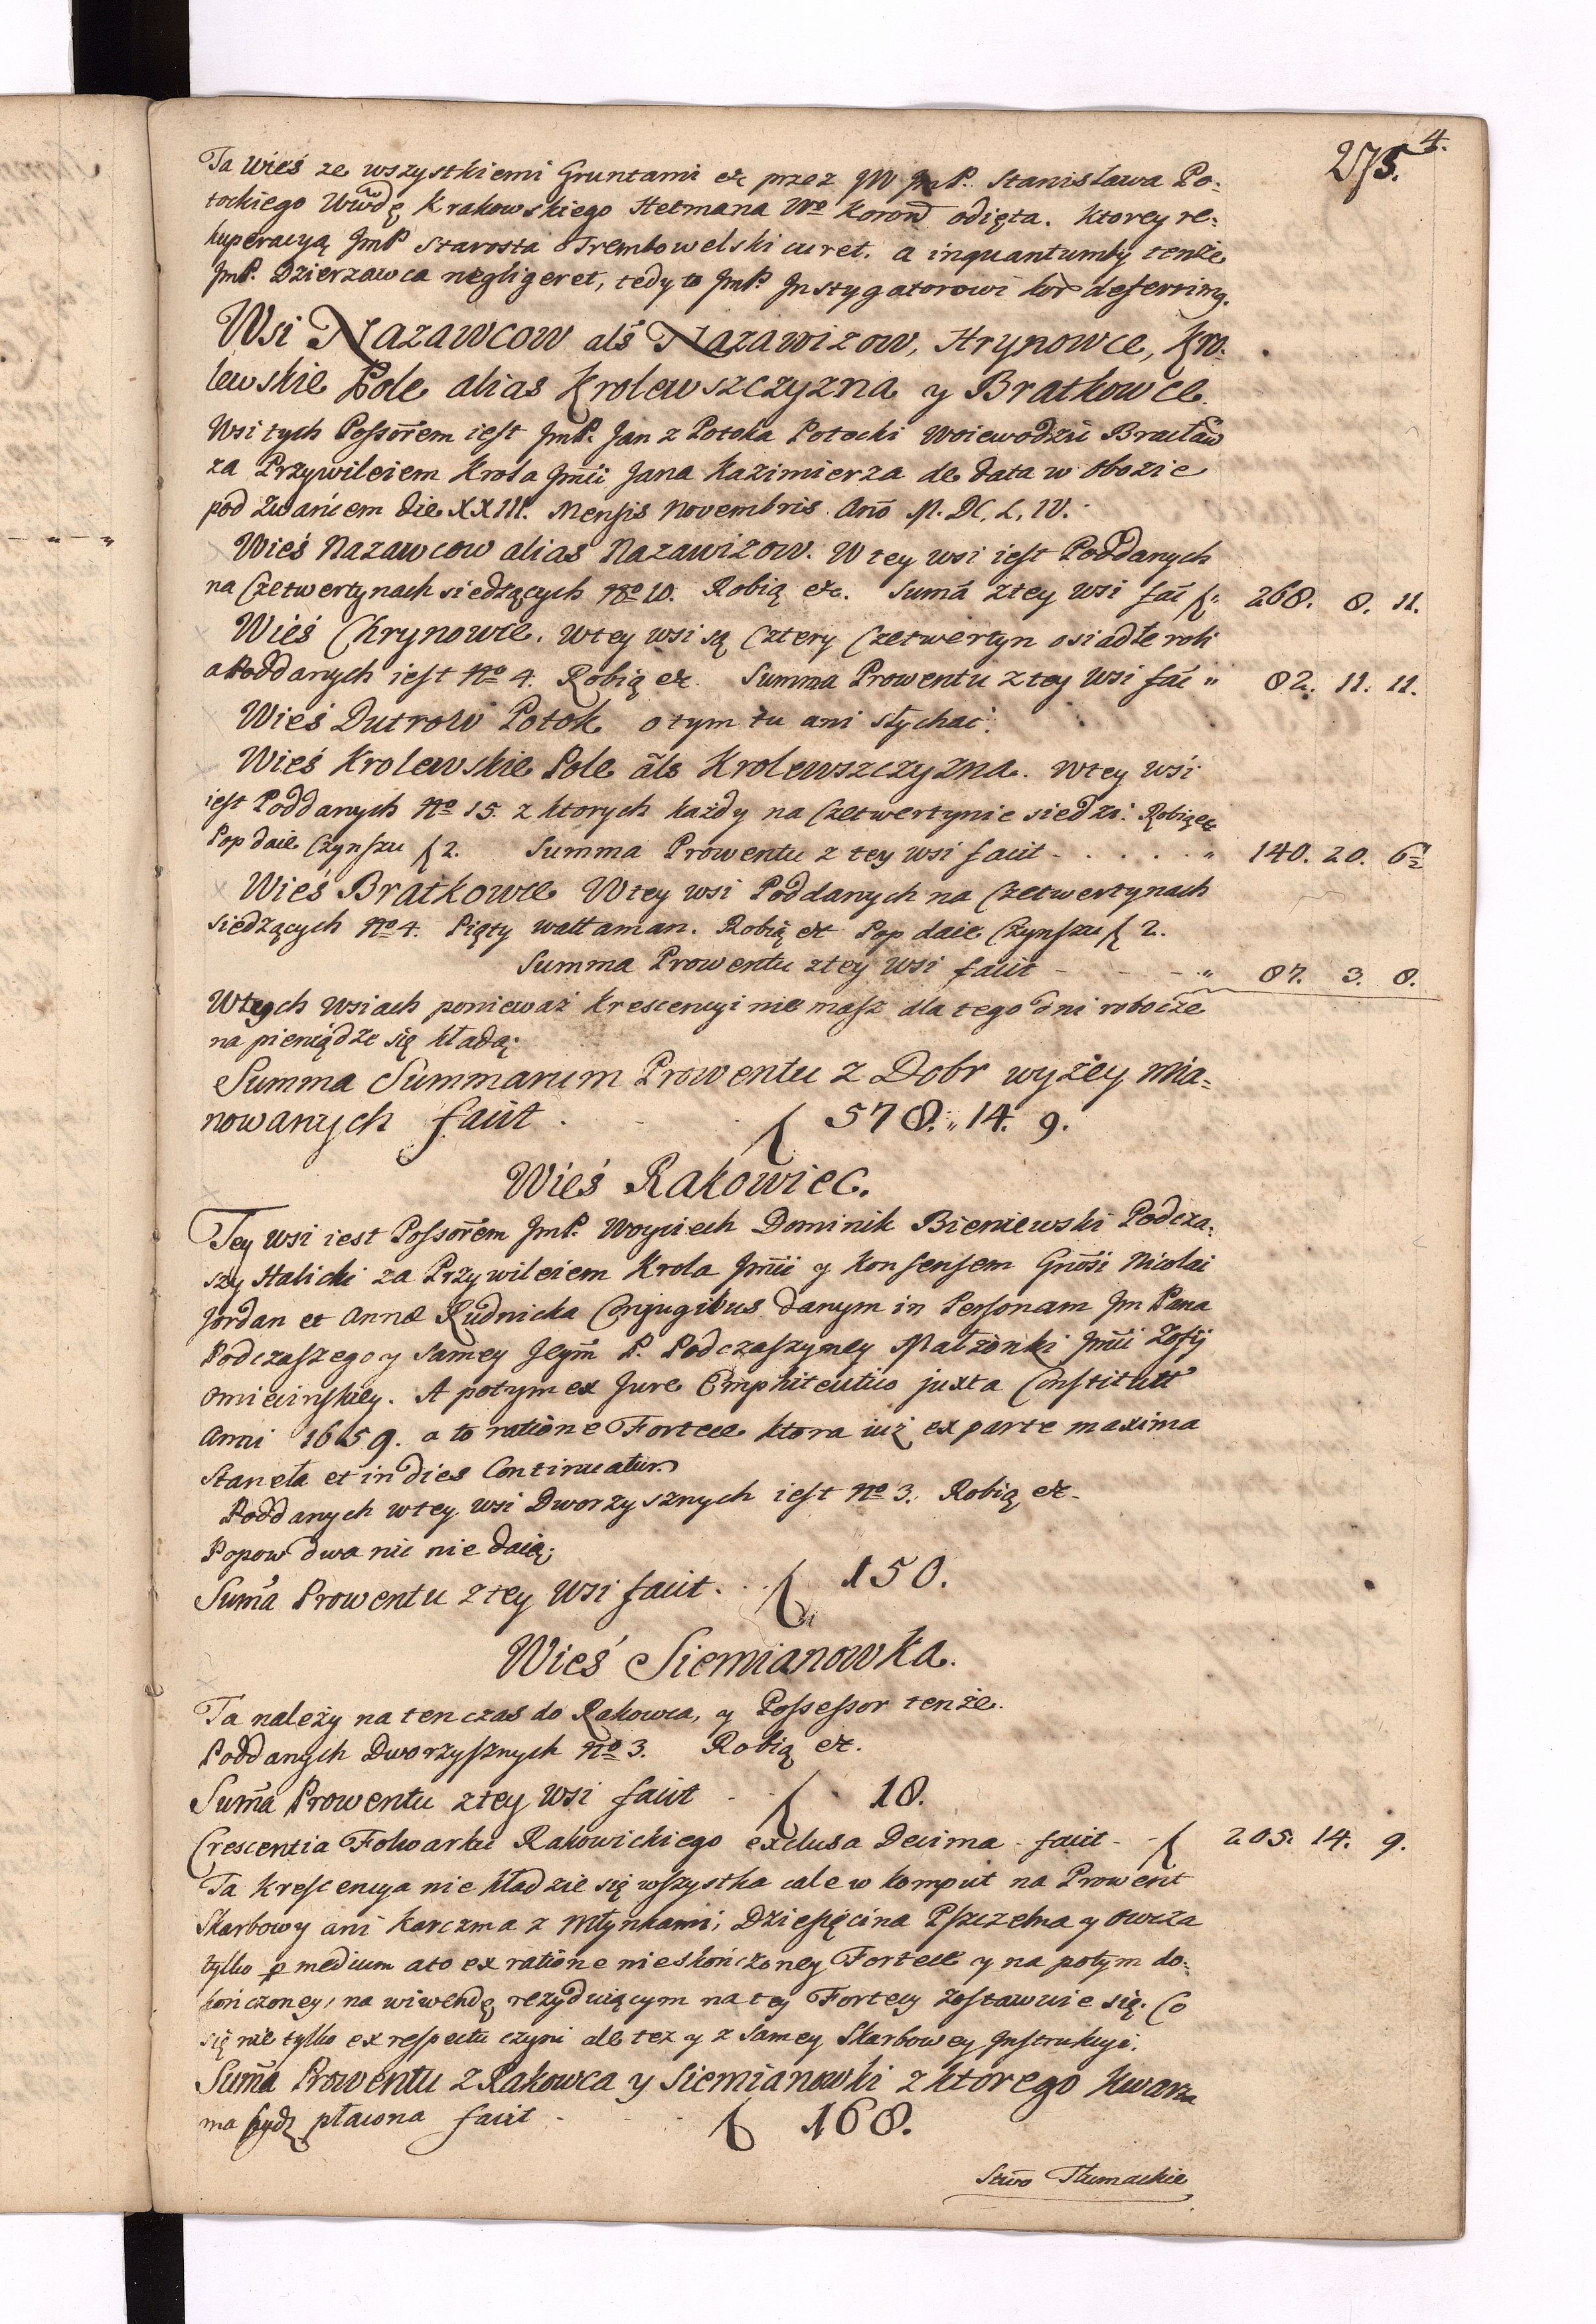 275. 4.
Ta wieś ze wszystkiemi Gruntami etc przez JW JmP. Stanisława Po:
tockiego Wwdę Krakowskiego Hetmana Wo Koron odięta. Ktorey re:
kuperacyą JmP Starosta Trembowelski curet. a inquantumby tenże
JmP. Dzierzawca negligeret, tedy to JmP. Jnstygatorowi kor deferrimg.
Wsi Nazawcow als Nazawizow, Hrynowce, Kro.
lewskie Pole alias Krolewszczyzna y Bratkowce.
Wsi tych Possorem iest JmP. Jan z Potoka Potocki Woiewodzic Bracław
za Przywileiem Krola Jmci Jana Kazimierza de data w Obozie
pod Zwańcem die XXIII. Mensis Novembris. Ano M. DC. L. IV.
Wieś Nazawcow alias Nazawizow. W tey wsi iest Poddanych
na Czetwertynach siedzących No 10. Robią etc. Suma z tey wsi fac ƒ " 268. 8. 11.
Wieś Chrynowce. W tey wsi są Cztery Czetwertyn osiadłe roli
a Poddanych iest No 4. Robią etc. Summa Prowentu z tey wsi fac " 82. 11. 11.
Wieś Dutrow Potok o tym tu ani słychać.
Wieś Krolewskie Pole als Krolewszczyzna. W tey wsi
iest Poddanych No 15. z ktorych każdy na Czetwertynie siedzi. Robią etc
Pop daie Czynszu ƒ 2. Summa Prowentu z tey wsi facit . . . . . " 140. 20. 6½
Wieś Bratkowce W tey wsi Poddanych na Czetwertynach
siedzących No 4. Piąty wattaman. Robią etc Pop daie Czynszu ƒ 2.
Summa Prowentu z tey wsi facit - - - " 87. 3. 8.
W tych wsiach ponieważ Krescencyi nie masz dla tego dni robocze
na pieniądze się kładą;
Summa Summarum Prowentu z Dobr wyżey mia=
nowanych facit . ƒ 578. " 14. 9.
Wieś Rakowiec.
Tey wsi iest Possorem JmP. Woyciech Dominik Bieniewski Podcza:
szy Halicki za Przywileiem Krola Jmci y Konsensem Gnosi Nicolai
Jordan et Anna Rudnicka Conjugibus danym in Personam Jm Pana
Podczaszego y Samey Jeym P. Podczaszyney Małżonki Jmci Zofij
Omiecinskiey. A potym ex Jure Emphiteutico juxta Constitutt
Anni 1659. a to ratione Fortece ktora iuż ex parte maxima
Staneła et in dies Continuatur.
Poddanych w tey wsi Dworzysznych iest No 3. Robią etc.
Popow dwa nic nie daią;
Suma Prowentu z tey wsi facit. . . ƒ 150.
Wieś Siemianowka.
Ta należy na ten czas do Rakowca, y Possessor tenże.
Poddanych Dworzysznych No 3. Robią etc.
Suma Prowentu z tey wsi facit - ƒ 18.
Crescentia Folwarku Rakowickiego exclusa Decima - facit - ƒ 205. 14. 9.
Ta Krescencya nie kładzie się wszystka cale w komput na Prowent
Skarbowy ani Karczma z Młynkami; Dziesięcina Pszczelna y Owcza
tylko p medium a to ex ratione nieskończoney Fortece y na potym do:
kończoney, na wiwendę rezyduiącym na tey Fortecy zostawuie się. Co
się nie tylko ex respectu czyni ale tez y z Samey Skarbowey Jnstrukcyi.
Suma Prowentu z Rakowca y Siemianowki z ktorego kwarta
ma bydz płacona facit - ƒ 168.
Stwo Tłumackie